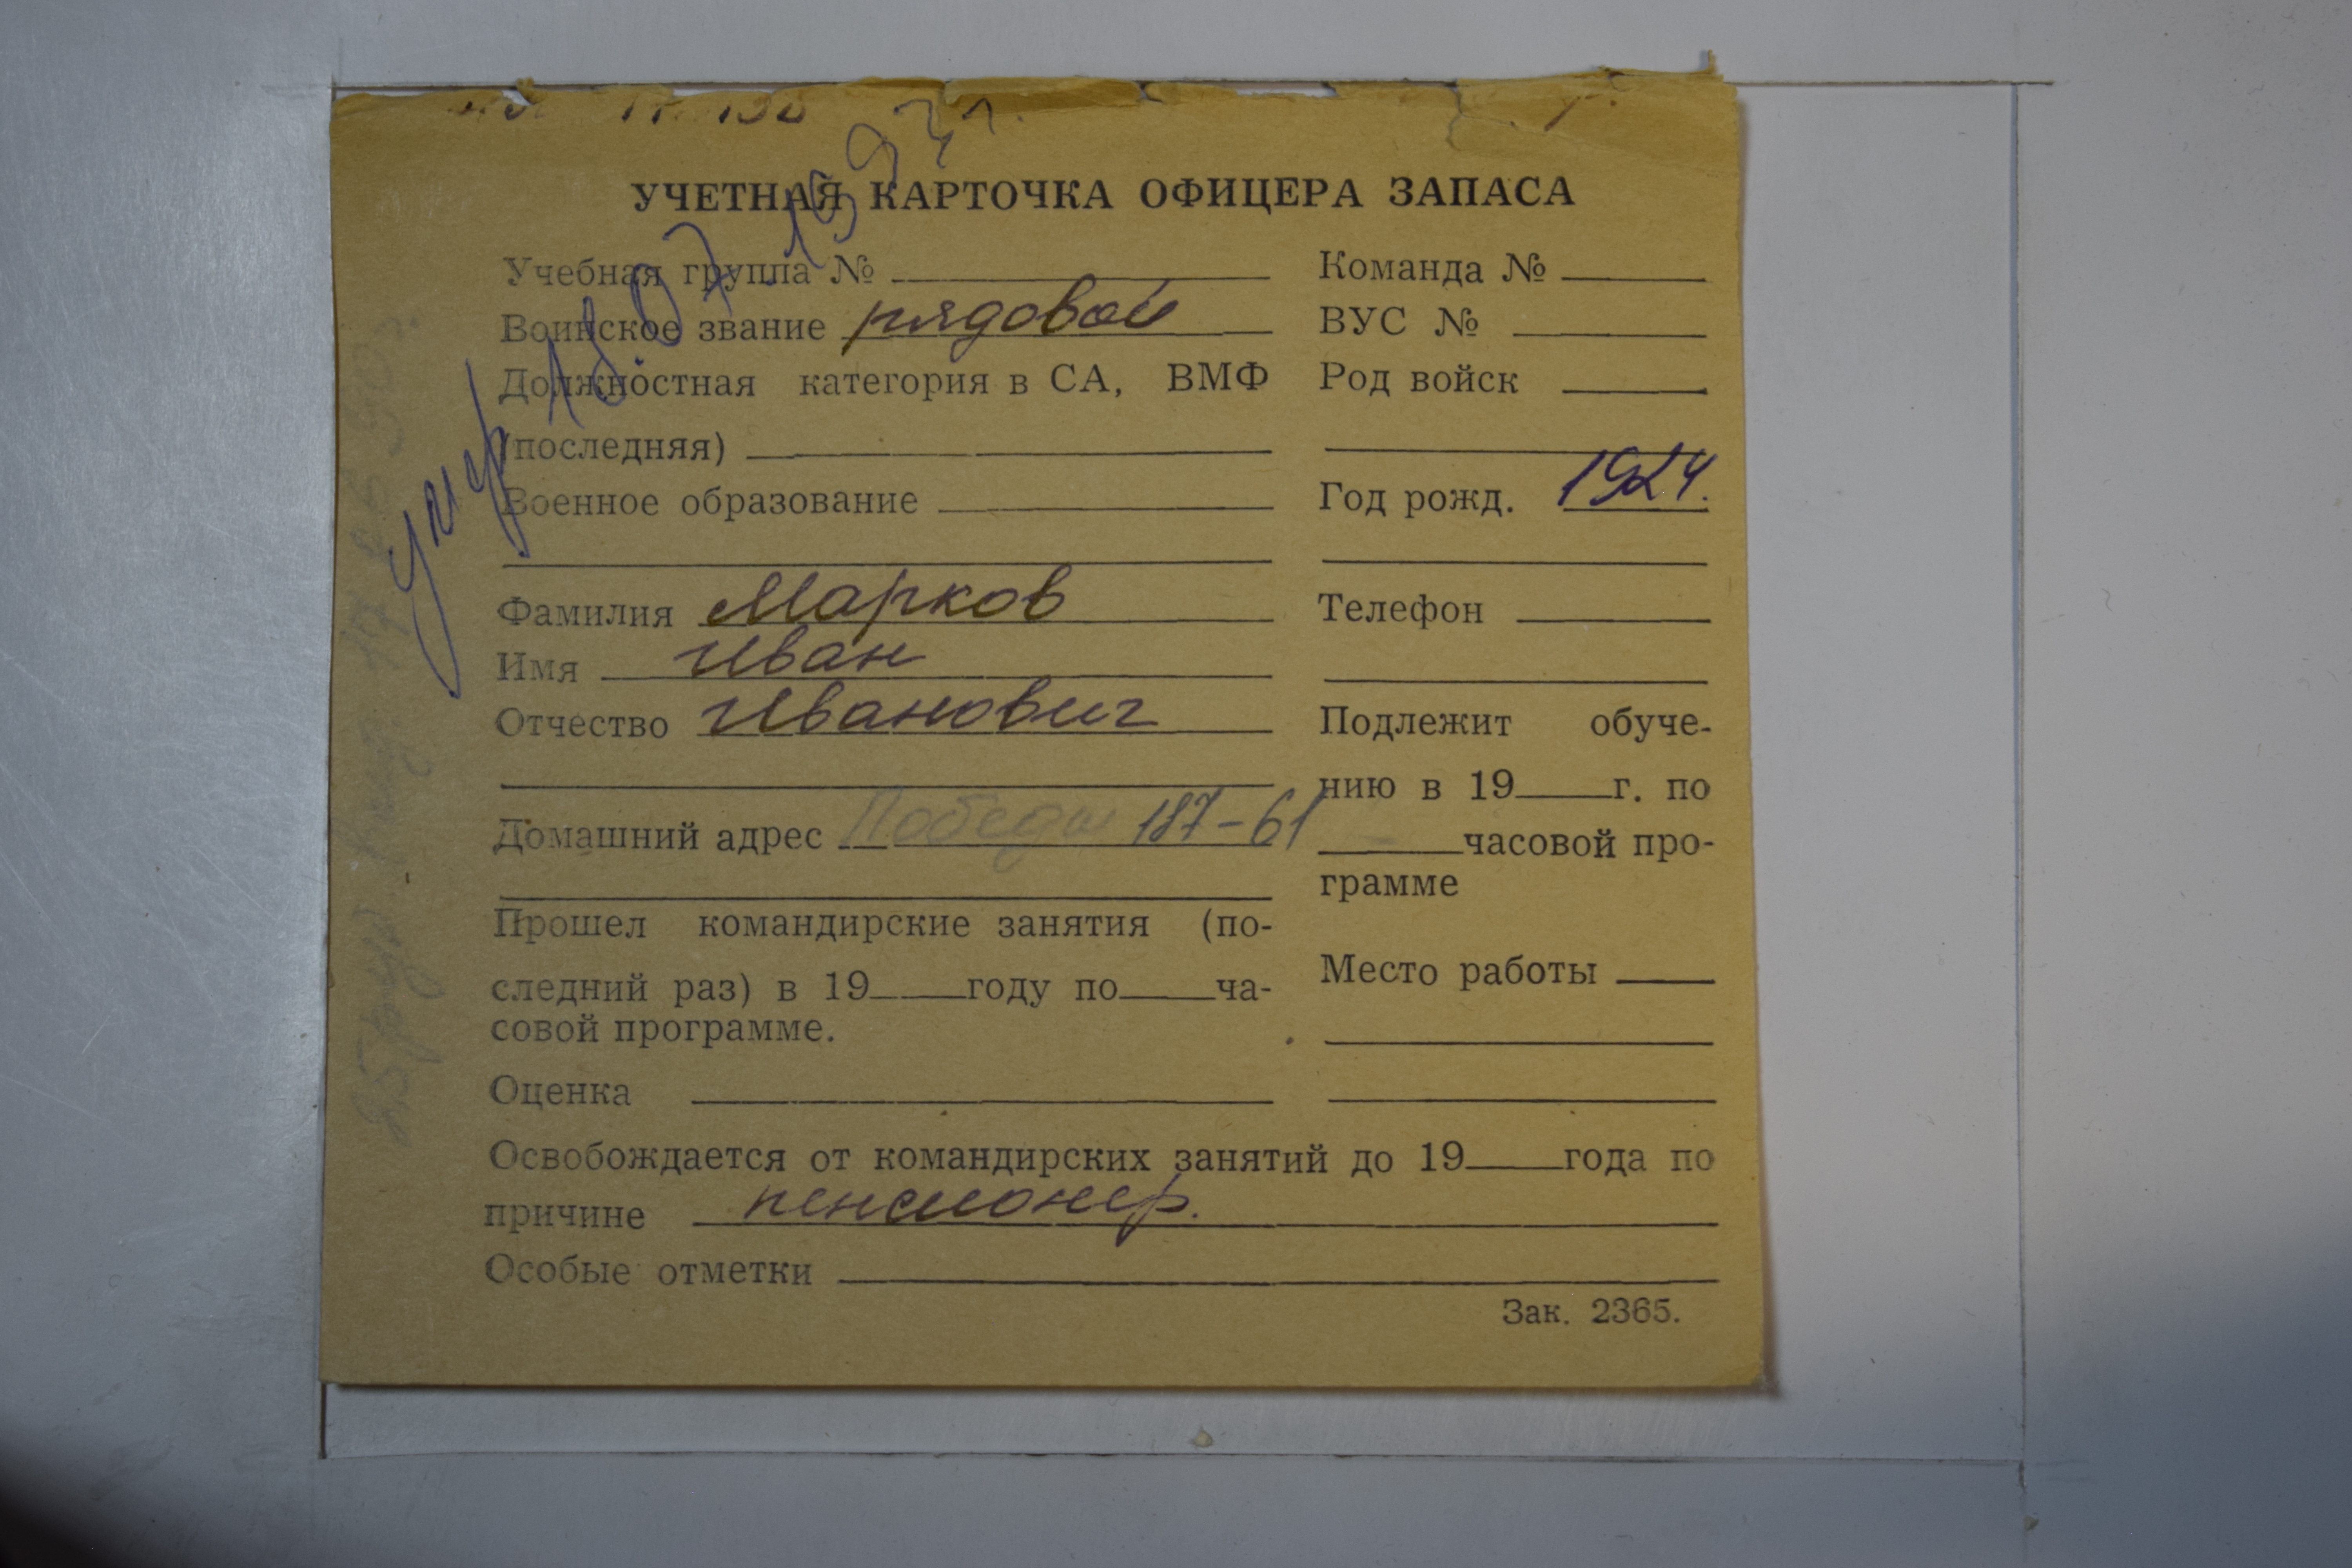 УЧЕТНАЯ КАРТОЧКА ОФИЦЕРА ЗАПАСА
Учебная группа №
Воинское звание рядовой
Должностная категория в СА, ВМФ
(последняя)
Военное образование
Фамилия Марков
Имя Иван
Отчество Иванович
Домашний адрес Победы 187-61
Прошел командирские занятия (по-
следний раз) в 19 году по ча-
совой программе.
Оценка
Команда №
ВУС №
Род войск
Год рожд. 1924.
Телефон
Подлежит обуче-
нию в 19 г. по
часовой про-
грамме
Место работы
Освобождается от командирских занятий до 19 года по
причине пенсионер.
Особые отметки
Зак. 2365.
умер